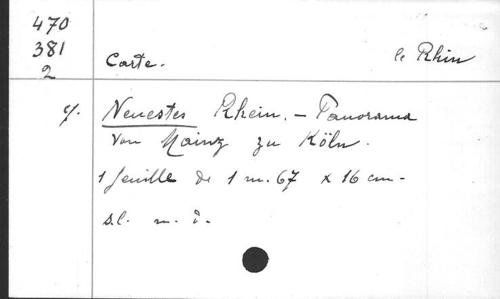 470
381
2
Carte. le Rhin
Neuestes Rhein.-Panorama
von Mainz zu Köln.
1 feuille de 1 m. 67 x 16 cm-
s.l. n. d.